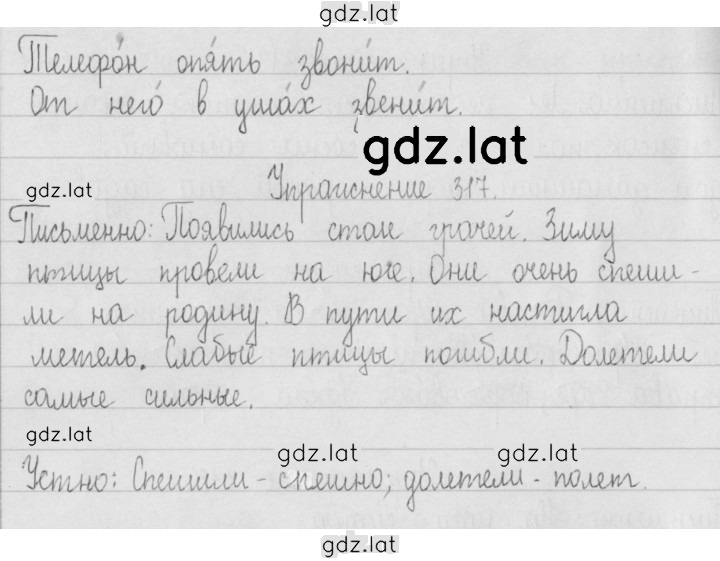 gdz.lat
Телефо́н опя́ть звони́т.
От него́ в уша́х звени́т.
gdz.lat
gdz.lat
Упражнение 317.
Письменно: Появились стаи грачей. Зиму
птицы провели на юге. Они очень спеши-
ли на родину. В пути их настигла
метель. Слабые птицы погибли. Долетели
самые сильные.
gdz.lat
gdz.lat
gdz.lat
Устно: Спешили - спешно; долетели - полет.
gdz.lat